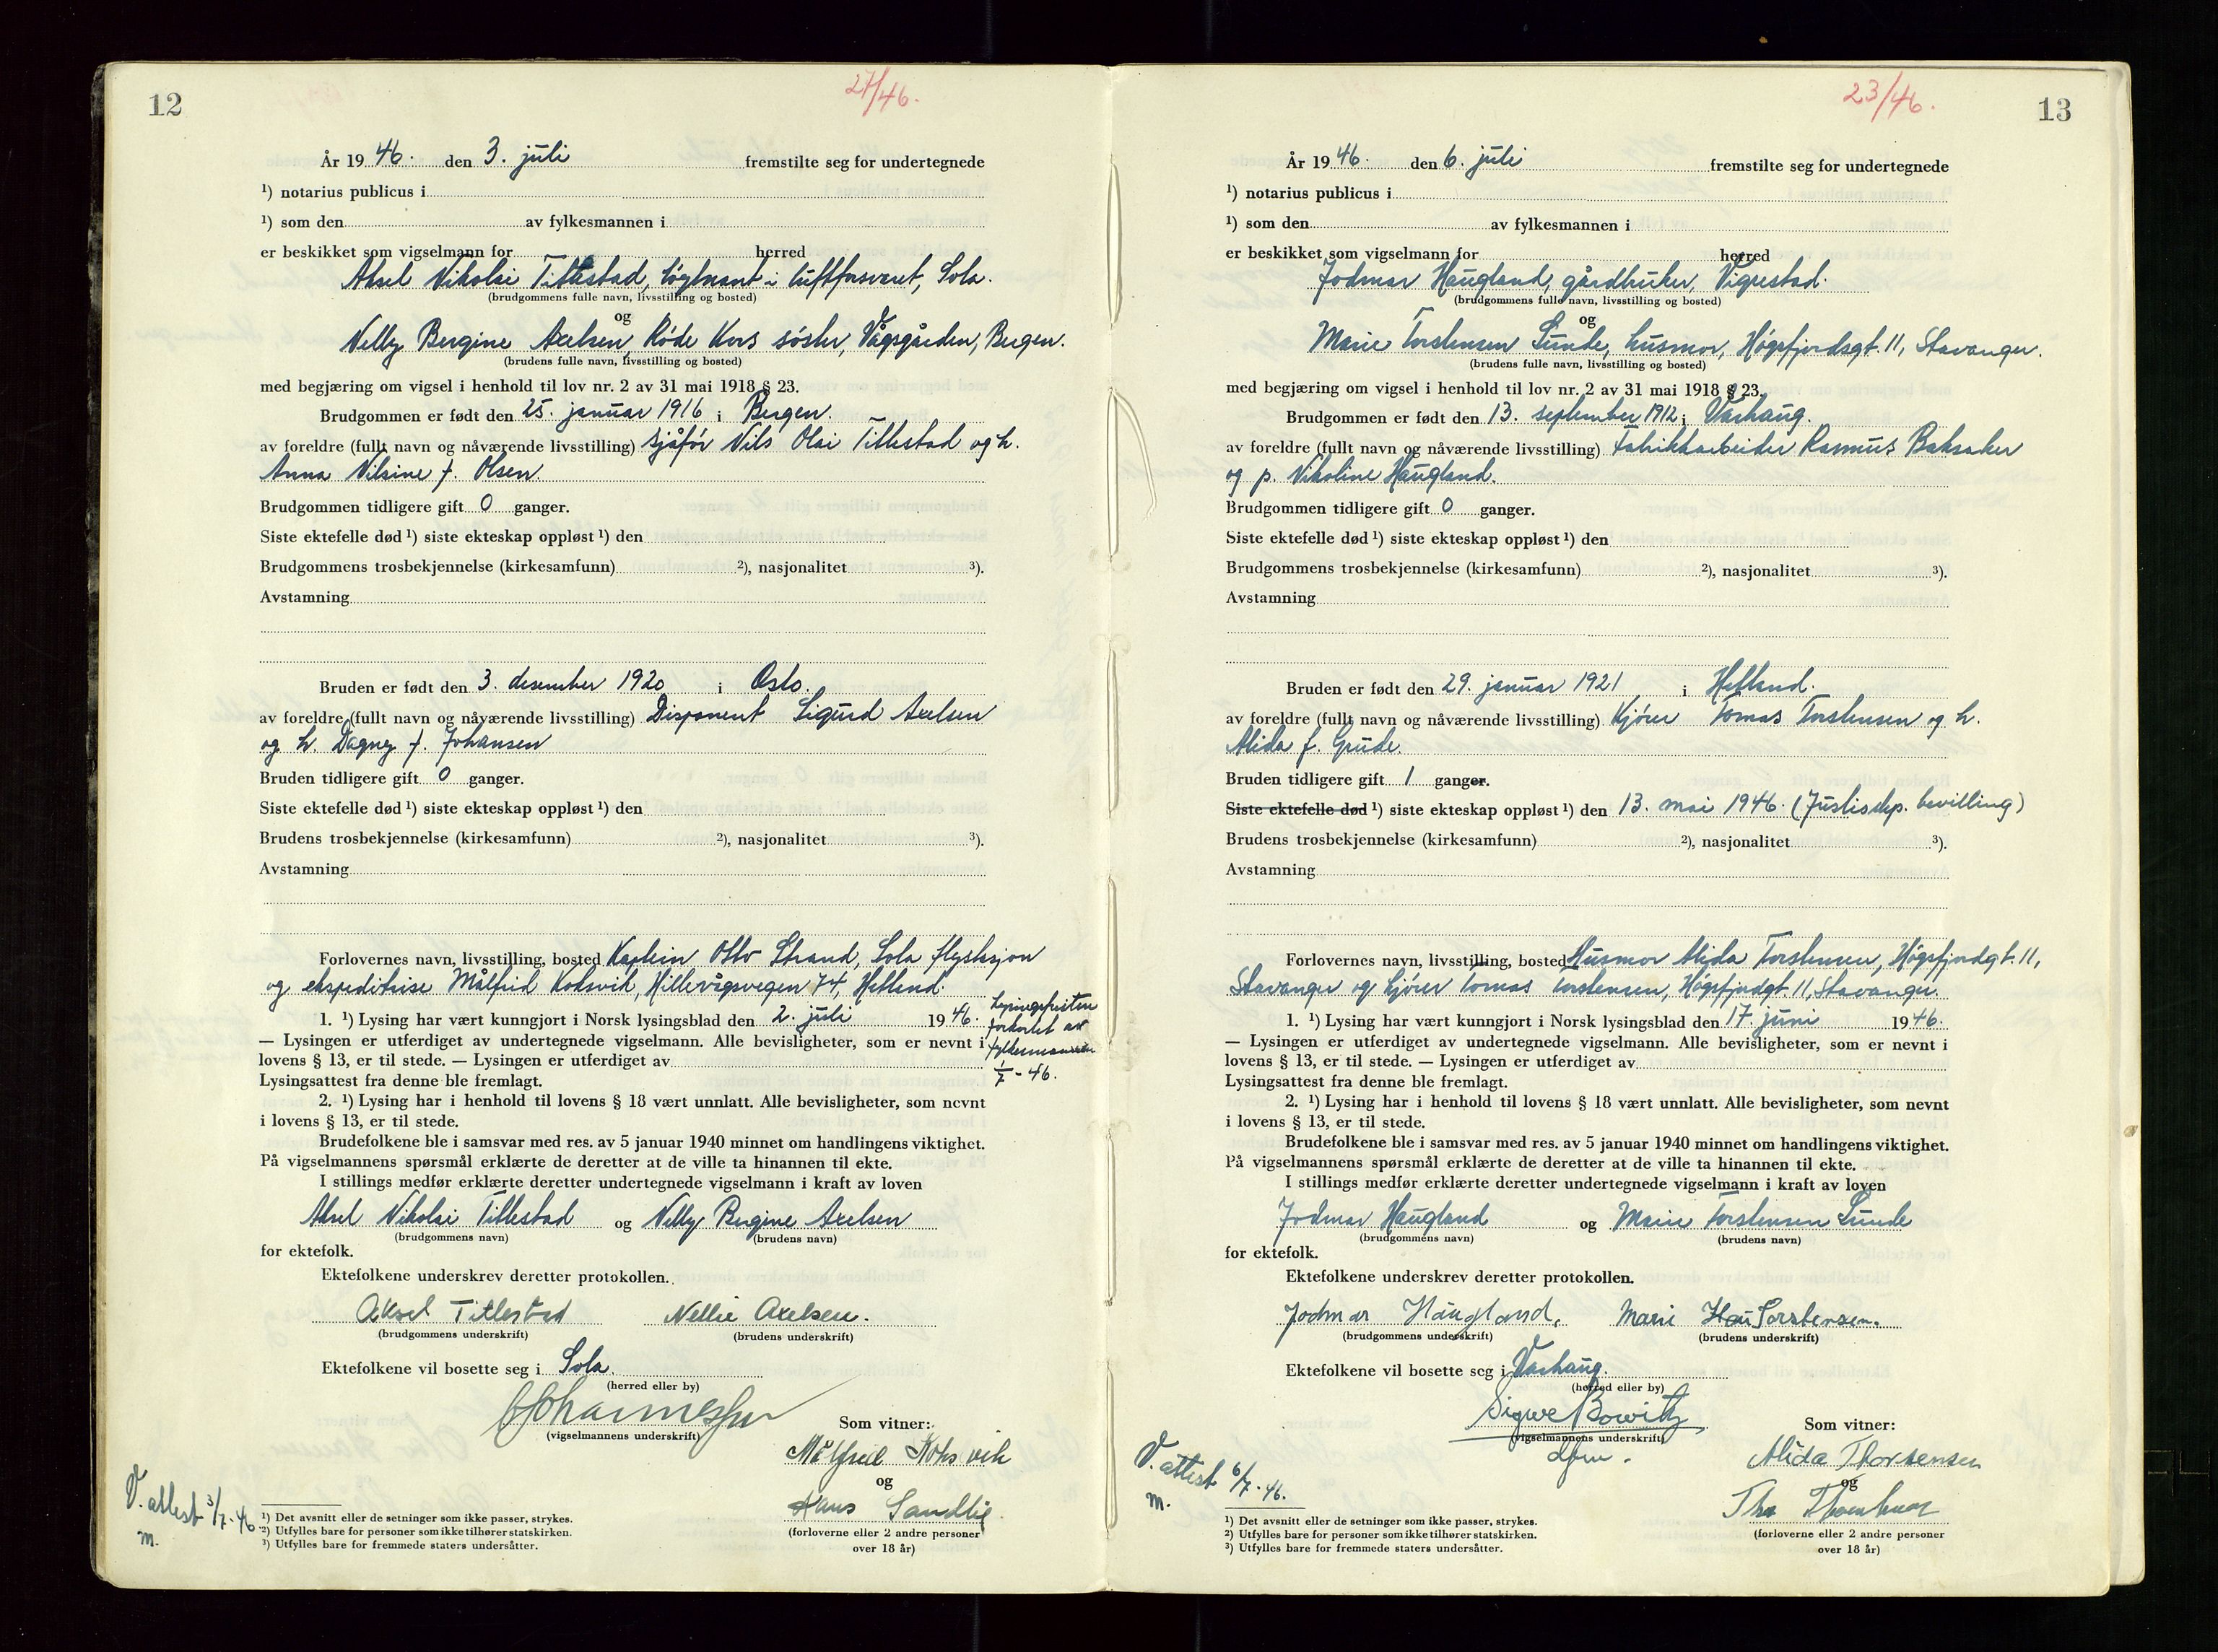 12
27/46.
År 1946. den 3. juli fremstilte seg for undertegnede
¹) notarius publicus i
¹) som den av fylkesmannen i
er beskikket som vigselmann for herred
Aksel Nikolai Titlestad, løytnant i luftforsvaret, Sola.
(brudgommens fulle navn, livsstilling og bosted)
og
Nelly Bergine Axelsen, Røde Kors søster, Vågsgården, Bergen.
(brudens fulle navn, livsstilling og bosted)
med begjæring om vigsel i henhold til lov nr. 2 av 31 mai 1918 § 23.
Brudgommen er født den 25. januar 1916 i Bergen.
av foreldre (fullt navn og nåværende livsstilling) sjåfør Nils Olai Titlestad og h.
Anna Nilsine f. Olsen.
Brudgommen tidligere gift 0 ganger.
Siste ektefelle død ¹) siste ekteskap oppløst ¹) den
Brudgommens trosbekjennelse (kirkesamfunn) ²), nasjonalitet ³).
Avstamning
Bruden er født den 3. desember 1920 i Oslo.
av foreldre (fullt navn og nåværende livsstilling) Disponent Sigurd Axelsen
og h. Dagny f. Johansen
Bruden tidligere gift 0 ganger.
Siste ektefelle død ¹) siste ekteskap oppløst ¹) den
Brudens trosbekjennelse (kirkesamfunn) ²), nasjonalitet ³).
Avstamning
Forlovernes navn, livsstilling, bosted Kaptein Otto Strand, Sola flystasjon
og ekspeditrise Målfrid Koksvik, Hillevågsvegen 74, Hetland.
1. ¹) Lysing har vært kunngjort i Norsk lysingsblad den 2. juli 1946.
Lysingsfristen
forkortet av
fylkesmannen
1/7 - 46.
— Lysingen er utferdiget av undertegnede vigselmann. Alle bevisligheter, som er nevnt i
lovens § 13, er til stede. — Lysingen er utferdiget av
Lysingsattest fra denne ble fremlagt.
2. ¹) Lysing har i henhold til lovens § 18 vært unnlatt. Alle bevisligheter, som nevnt
i lovens § 13, er til stede.
Brudefolkene ble i samsvar med res. av 5 januar 1940 minnet om handlingens viktighet.
På vigselmannens spørsmål erklærte de deretter at de ville ta hinannen til ekte.
I stillings medfør erklærte deretter undertegnede vigselmann i kraft av loven
Aksel Nikolai Titlestad og Nelly Bergine Axelsen
(brudgommens navn) (brudens navn)
for ektefolk.
Ektefolkene underskrev deretter protokollen.
Aksel Titlestad Nellie Axelsen.
(brudgommens underskrift) (brudens underskrift)
Ektefolkene vil bosette seg i Sola.
(herred eller by)
(vigselmannens underskrift)
Som vitner:
Målfrid Koksvik
og
Hans Sandlie
(forloverne eller 2 andre personer
over 18 år)
V. attest 3/7-46
m.
¹) Det avsnitt eller de setninger som ikke passer, strykes.
²) Utfylles bare for personer som ikke tilhører statskirken.
³) Utfylles bare for fremmede staters undersåtter.
23/46.
13
År 1946. den 6. juli fremstilte seg for undertegnede
¹) notarius publicus i
¹) som den av fylkesmannen i
er beskikket som vigselmann for herred
Jodmar Haugland, gårdbruker, Vigrestad.
(brudgommens fulle navn, livsstilling og bosted)
og
Marie Torstensen Sunde, husmor, Høgsfjordsgt. 11, Stavanger.
(brudens fulle navn, livsstilling og bosted)
med begjæring om vigsel i henhold til lov nr. 2 av 31 mai 1918 § 23.
Brudgommen er født den 13. september 1912 i Varhaug.
av foreldre (fullt navn og nåværende livsstilling) Fabrikkarbeider Rasmus Baksaker
og p. Nikoline Haugland.
Brudgommen tidligere gift 0 ganger.
Siste ektefelle død ¹) siste ekteskap oppløst ¹) den
Brudgommens trosbekjennelse (kirkesamfunn) ²), nasjonalitet ³).
Avstamning
Bruden er født den 29. januar 1921 i Hetland.
av foreldre (fullt navn og nåværende livsstilling) Kjører Tomas Torstensen og h.
Alida f. Grude.
Bruden tidligere gift 1 ganger.
Siste ektefelle død ¹) siste ekteskap oppløst ¹) den 13. mai 1946. (Justisdep. bevilling)
Brudens trosbekjennelse (kirkesamfunn) ²), nasjonalitet ³).
Avstamning
Forlovernes navn, livsstilling, bosted Husmor Alida Torstensen, Høgsfjordgt. 11,
Stavanger og kjører Tomas Torstensen, Høgsfjordgt. 11, Stavanger.
1. ¹) Lysing har vært kunngjort i Norsk lysingsblad den 17. juni 1946.
— Lysingen er utferdiget av undertegnede vigselmann. Alle bevisligheter, som er nevnt i
lovens § 13, er til stede. — Lysingen er utferdiget av
Lysingsattest fra denne ble fremlagt.
2. ¹) Lysing har i henhold til lovens § 18 vært unnlatt. Alle bevisligheter, som nevnt
i lovens § 13, er til stede.
Brudefolkene ble i samsvar med res. av 5 januar 1940 minnet om handlingens viktighet.
På vigselmannens spørsmål erklærte de deretter at de ville ta hinannen til ekte.
I stillings medfør erklærte deretter undertegnede vigselmann i kraft av loven
Jodmar Haugland og Marie Torstensen Sunde
(brudgommens navn) (brudens navn)
for ektefolk.
Ektefolkene underskrev deretter protokollen.
Jodmar Haugland, Marie Hau Torstensen.
(brudgommens underskrift) (brudens underskrift)
Ektefolkene vil bosette seg i Varhaug.
(herred eller by)
Sigwe Bowitz
(vigselmannens underskrift)
Som vitner:
Alida Thorstensen
og
(forloverne eller 2 andre personer
over 18 år)
V. attest 6/7-46.
m.
¹) Det avsnitt eller de setninger som ikke passer, strykes.
²) Utfylles bare for personer som ikke tilhører statskirken.
³) Utfylles bare for fremmede staters undersåtter.